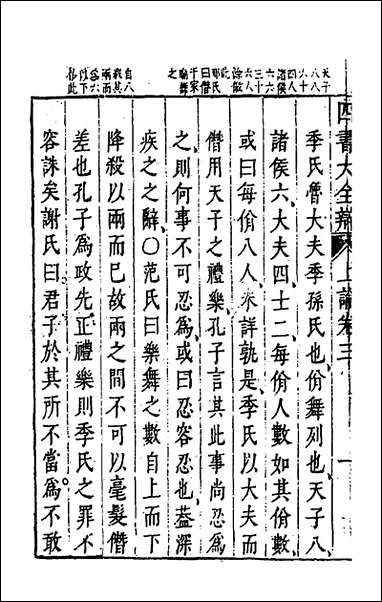 四書大全辯 上論卷三 一
天子八八六十四人諸侯六六三十六人餘倣此
邢氏曰僭于家廟舞之
自八殺其兩而爲六以下放此
季氏魯大夫季孫氏也佾舞列也天子八
諸侯六大夫四士二每佾人數如其佾數
或曰每佾八人未詳孰是季氏以大夫而
僭用天子之禮樂孔子言其此事尚忍爲
之則何事不可忍爲或曰忍容忍也葢深
疾之之辭○范氏曰樂舞之數自上而下
降殺以兩而已故兩之間不可以毫髮僭
差也孔子爲政先正禮樂則季氏之罪不
容誅矣謝氏曰君子於其所不當爲不敢